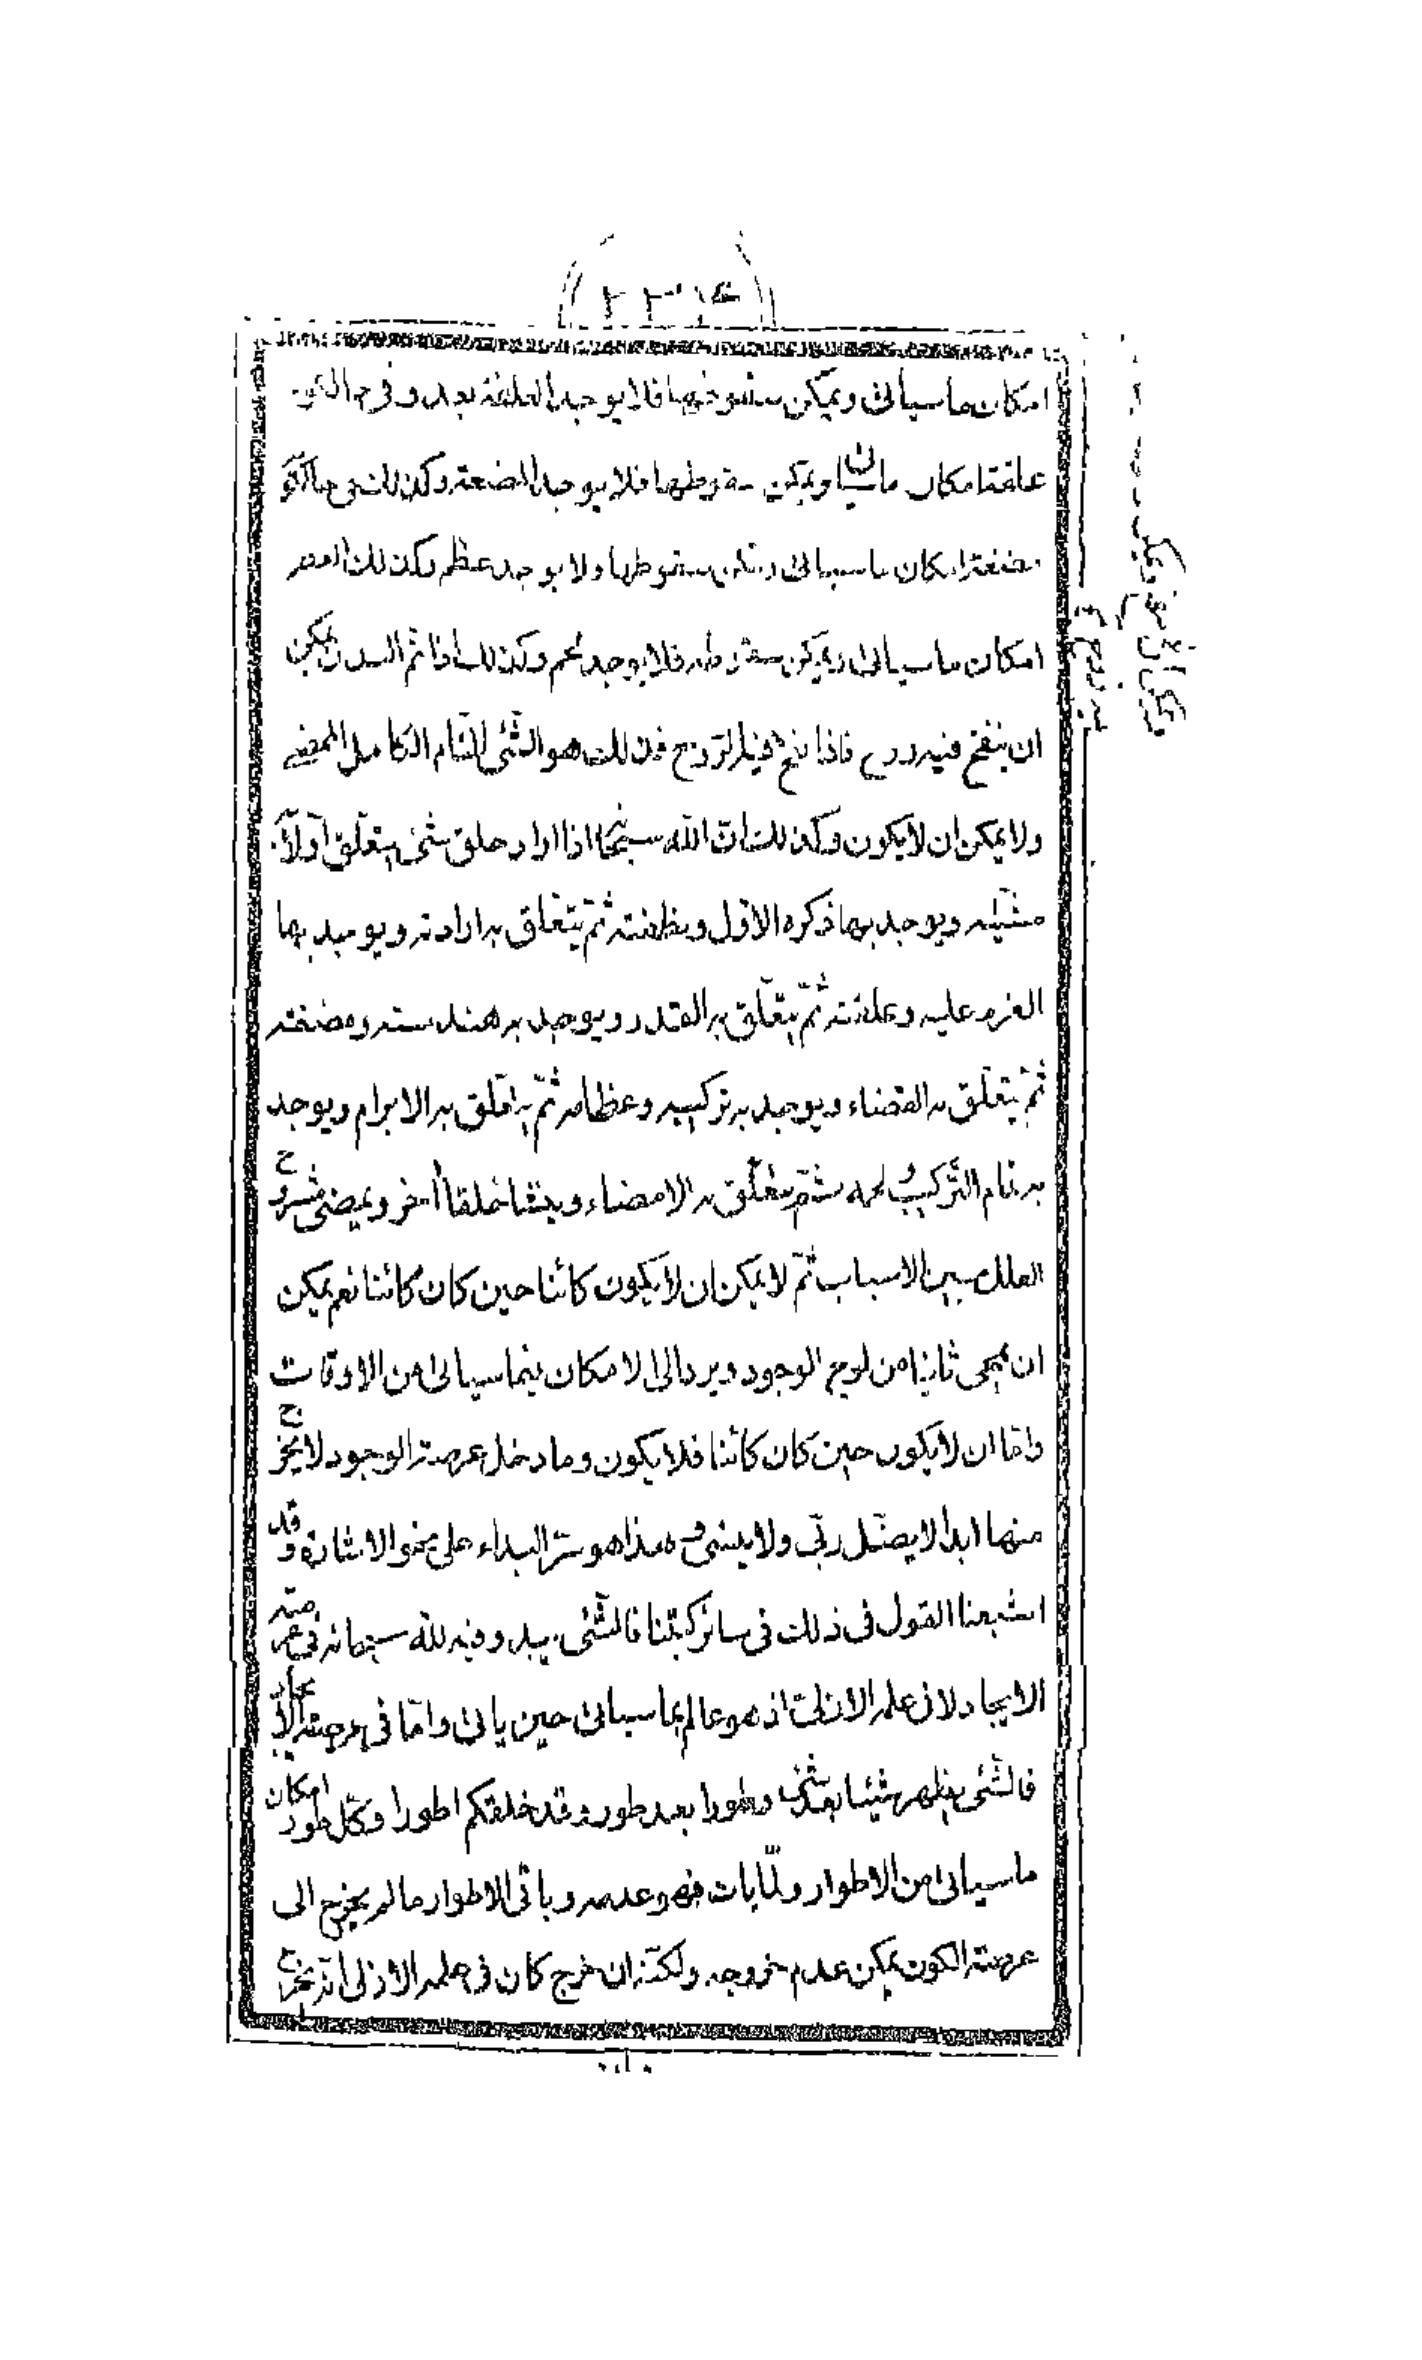 امكان ماسيأتى ويمكن سقوطها فلا يوجد العلقة بعد وفى حال كونه
علقة امكان ماسيأتى ويمكن سقوطها فلا يوجد المضغة وكذلك فى حال كونه
مضغة امكان ماسيأتى ويمكن سقوطها ولا يوجد عظم وكذلك العظم
امكان ماسيأتى ويمكن سقوطه فلا يوجد لحم وكذلك اذا تم البدن يمكن
ان ينفخ فيه روح فاذا نفخ فيه الروح فذلك هو الشئ التام الكامل الممضى
ولا يمكن ان لا يكون وكذلك ان الله سبحانه اذا اراد خلق شئ يتعلق اولا
مشيته ويوجد بها ذكره الاول ونطفته ثم يتعلق به ارادته ويوجد بها
العزم عليه وعلقته ثم يتعلق به القدر ويوجد به هندسته ومضغته
ثم يتعلق به القضاء ويوجد به تركيبه وعظامه ثم يتعلق به الابرام ويوجد
به تمام التركيب ولحمه ثم يتعلق به الامضاء وينشأ خلقا آخر ويمضى مشروح
العلل مبين الاسباب ثم لا يمكن ان لا يكون كائنا حين كان كائنا نعم يمكن
ان يمحى ثانيا من لوح الوجود ويرد الى الامكان فيما سيأتى من الاوقات
واما ان لا يكون حين كان كائنا فلا يكون وما دخل عرصة الوجود لا يخرج
منها ابدا لا يضل ربى ولا ينسى و هذا هو سر البداء على نحو الاشارة وقد
اشبعنا القول فى ذلك فى سائر كتبنا فالشئ يبدو فيه لله سبحانه فى عرصة
الايجاد لا فى علمه الازلى اذ هو عالم بما سيأتى حين يأتى واما فى عرصة الايجاد
فالشئ يظهر شيئا بعد شئ وطورا بعد طور وقد خلقكم اطوارا وكل طور امكان
ماسيأتى من الاطوار ولما يأت فهو عدمه وباقى الاطوار مالم يخرج الى
عرصة الكون يمكن عدم خروجه ولكنه ان خرج كان فى علمه الازلى انه يخرج